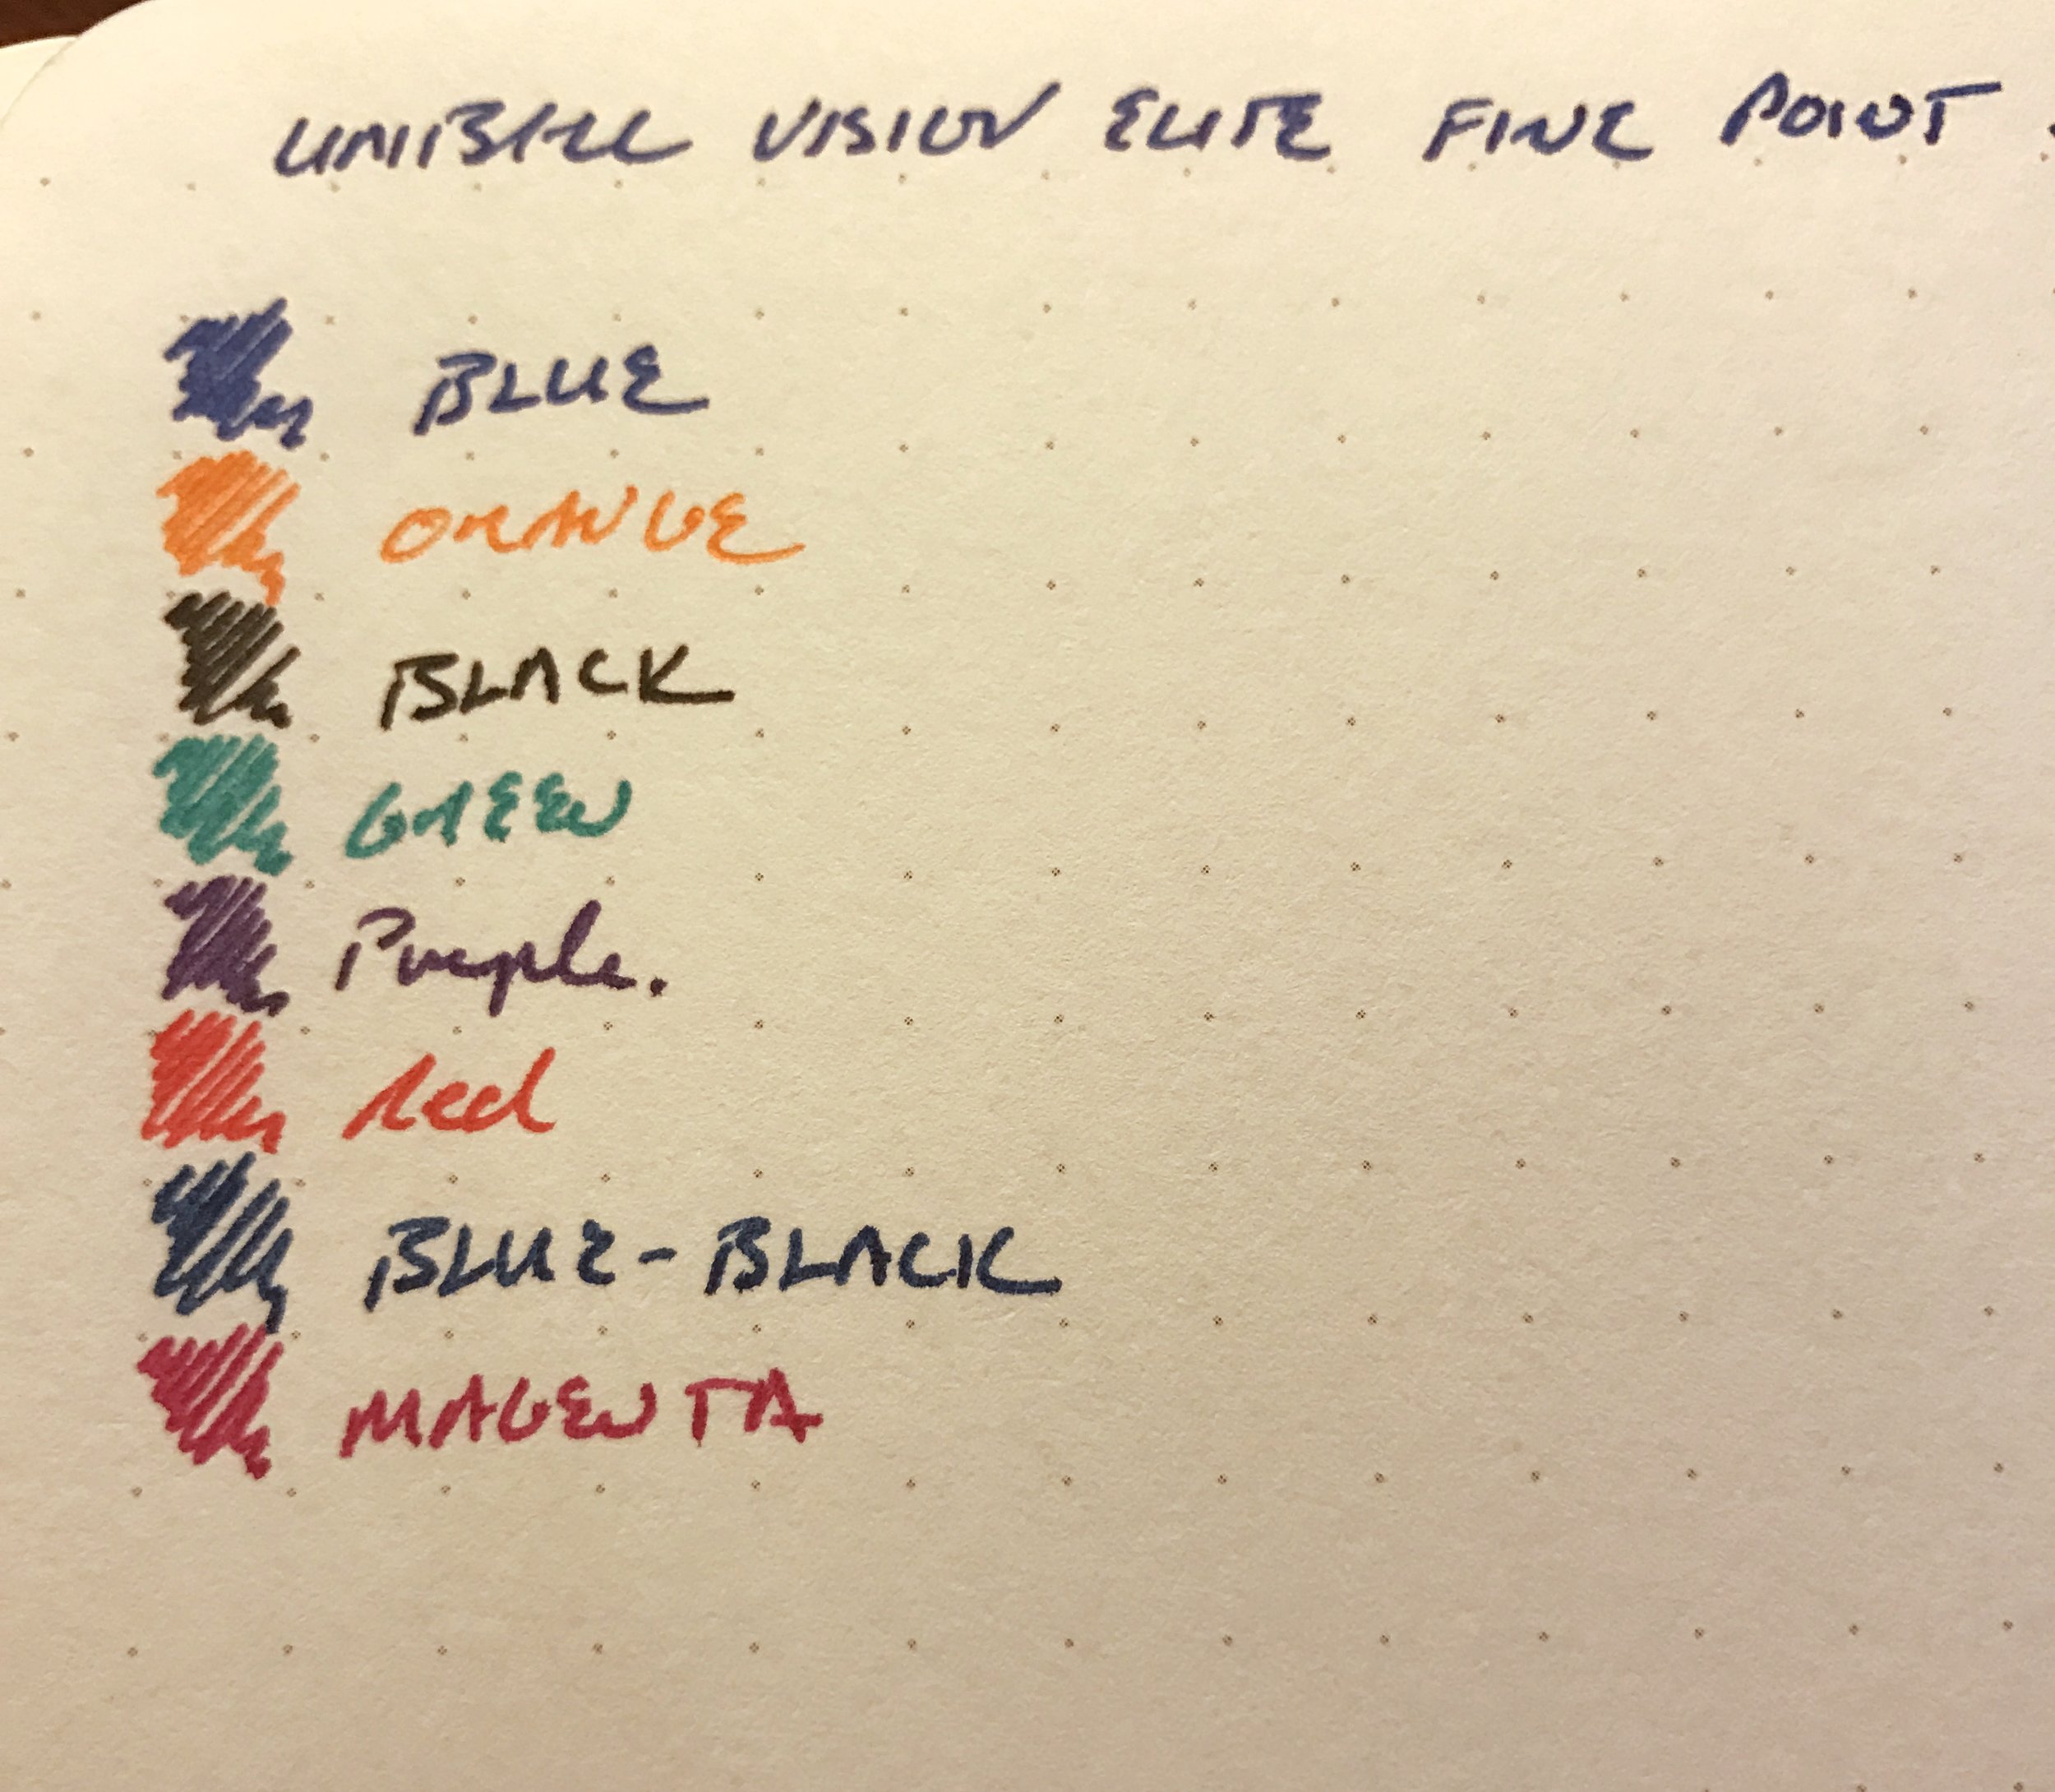 UNIBALL VISION ELITE FINE POINT.
BLUE
ORANGE
BLACK
GREEN
Purple.
red
BLUE-BLACK
MAGENTA